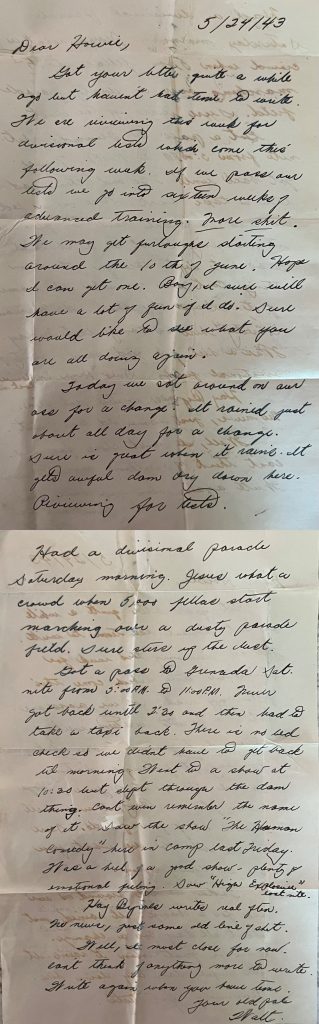 5/24/43
Dear Howie,
Got your letter quite a while
ago but havent had time to write.
We are reviewing this week for
divisional tests which come this
following week. If we pass our
tests we go into sixteen weeks of
advanced training. More shit.
We may get furloughs starting
around the 10th of June. Hope
I can get one. Boy, I sure will
have a lot of fun if I do. Sure
would like to see what you
are all doing again.
Today we sat around on our
ass for a change. It rained just
about all day for a change.
Sure is great when it rains. It
gets awful dam dry down here.
Reviewing for tests.
Had a divisional parade
Saturday morning. Jesus what a
crowd when 5,000 fellas start
marching over a dusty parade
field. Sure stirs up the dust.
Got a pass to Grenada Sat.
nite from 5:00 P.M. to 11:00 P.M. Never
got back until 2:30 and then had to
take a taxi back. There is no bed
check so we didnt have to get back
til morning. Went to a show at
10:30 but slept through the dam
thing. Cant even remember the name
of it. Saw the show "The Human
Comedy" here in camp last Friday.
Was a hell of a good show - plenty of
emotional feeling. Saw "High Explosive"
last nite.
Kay Byrnes writes real often.
No news, just same old line of shit.
Well, I must close for now.
Cant think of anything more to write.
Write again when you have time.
Your old pal
Walt.